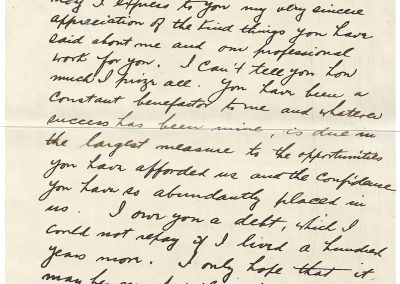 may I express to you my very sincere
appreciation of the kind things you have
said about me and our professional
work for you. I can't tell you how
much I prize all. You have been a
constant benefactor to me and whatever
success has been mine, is due in
the largest measure to the opportunities
you have afforded us and the confidence
you have so abundantly placed in
us. I owe you a debt, which I
could not repay if I lived a hundred
years more. I only hope that it
may be